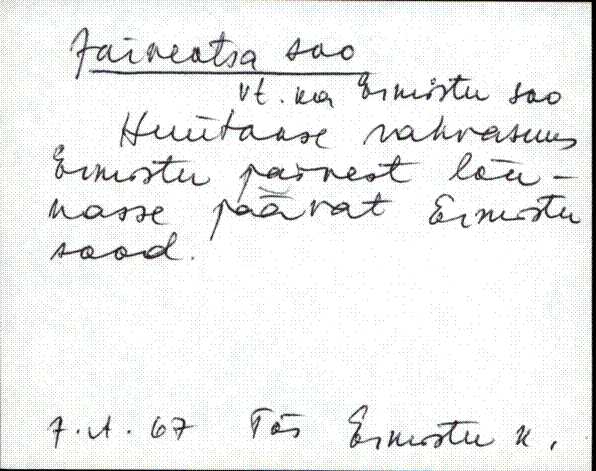 Järveotsa soo
vt. ka Ermistu soo
Hüütakse rahvasuus
Ermistu järvest lõu-
nasse jäävat Ermistu
sood.
7. . 67 Tõs Ermistu k.